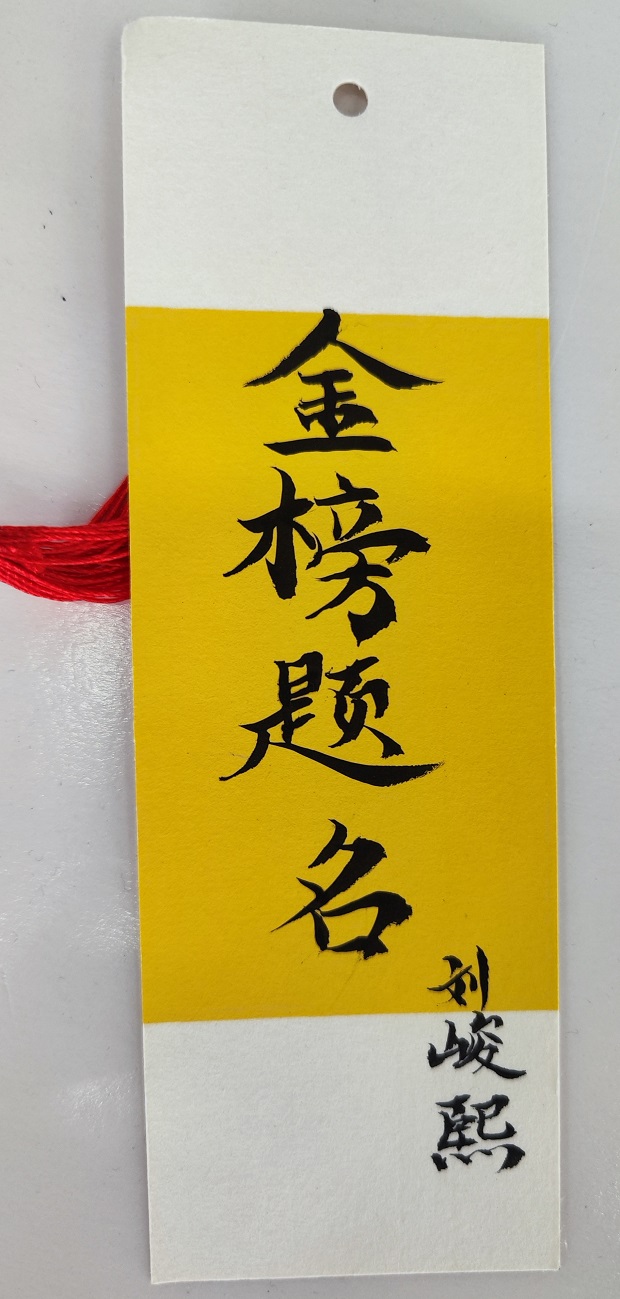 金榜题名
刘峻熙